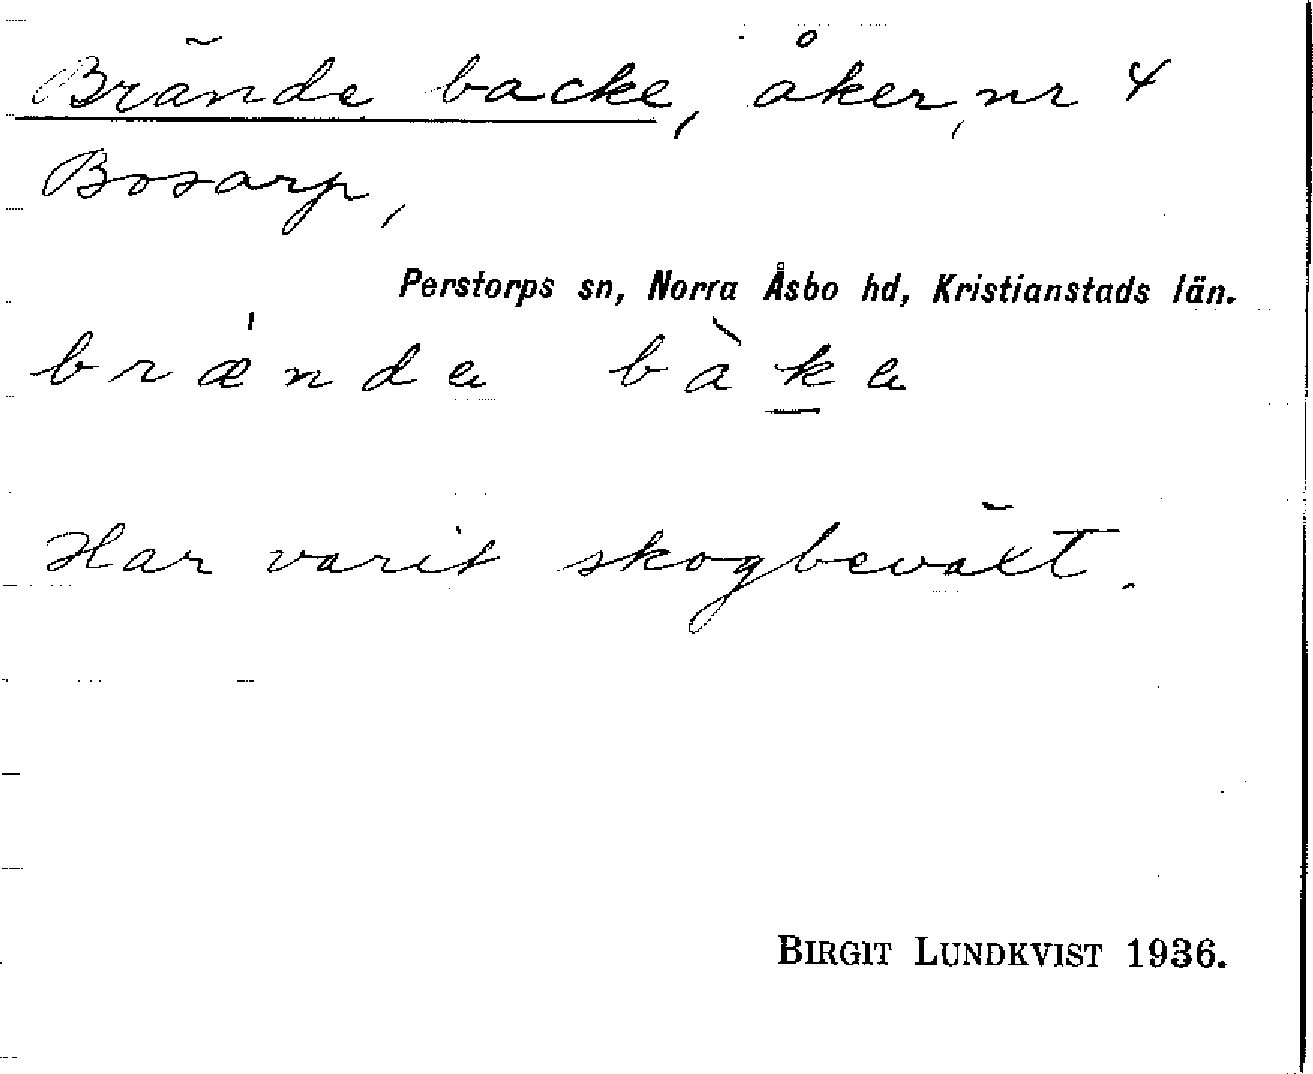 Brände backe, åker, nr 4
Bosarp,
Perstorps sn, Norra Åsbo hd, Kristianstads län.
brǽnde bàk̲e
Har varit skogbeväxt.
BIRGIT LUNDKVIST 1936.